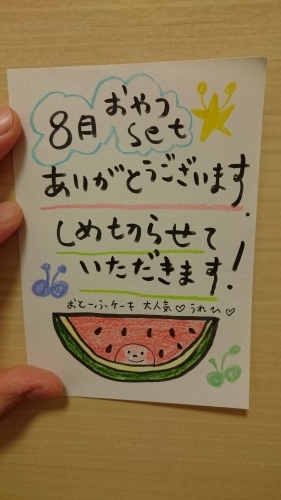 8月 おやつ
set
ありがとうございます.
しめ切らせて
いただきます!
おとーふケーキ 大人気♡ うれひ♡